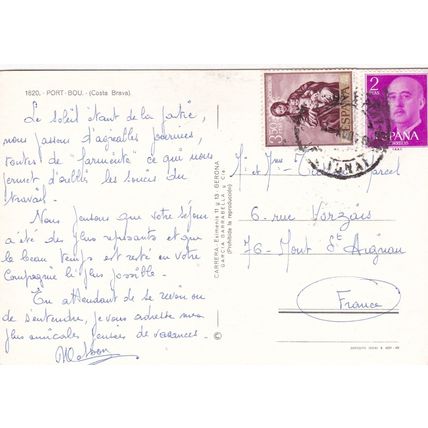 1820. - PORT-BOU. - (Costa Brava)
Le soleil étant de la partie,
nous passons d'agréables journées,
toutes de "farniente" ce qui nous
permet d'oublier les soucis du
travail.
Nous pensons que votre séjour
a été des plus reposants et que
le beau temps est resté en votre
Compagnie le plus possible.
En attendant de se revoir ou
de s'entendre, je vous adresse mes
plus amicales pensées de vacances.
CARRERA - Eximenis 11 y 13 - GERONA
GARCIA GARRABELLA y Cía.
(Prohibida la reproducción)
©
ESPAÑA
2
PTAS
ESPAÑA
CORREOS
M. et Mme Marcel
6. rue Vorzais
76 - Mont St Aignan
France